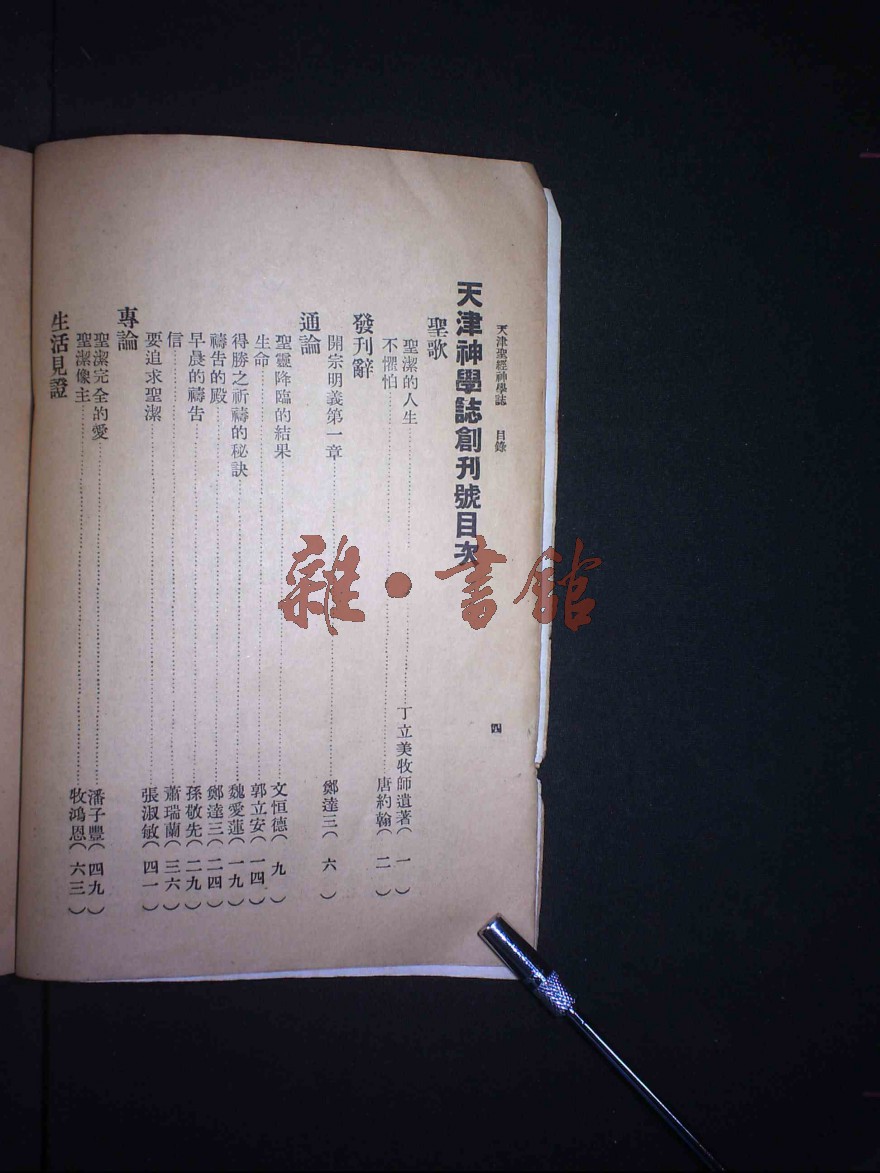 天津聖經神學誌 目錄 四
天津神學誌創刊號目次
聖歌
聖潔的人生 丁立美牧師遺著（一）
不懼怕 唐約翰（二）
發刊辭
開宗明義第一章 鄭達三（六）
通論
聖靈降臨的結果 文恒德（九）
生命 郭立安（一四）
得勝之祈禱的秘訣 魏愛蓮（一九）
禱告的殿 鄭達三（二四）
早晨的禱告 孫敬先（二九）
信 蕭瑞蘭（三六）
要追求聖潔 張淑敏（四一）
專論
聖潔完全的愛 潘子豐（四九）
聖潔像主 牧鴻恩（六三）
生活見證
雜·書館